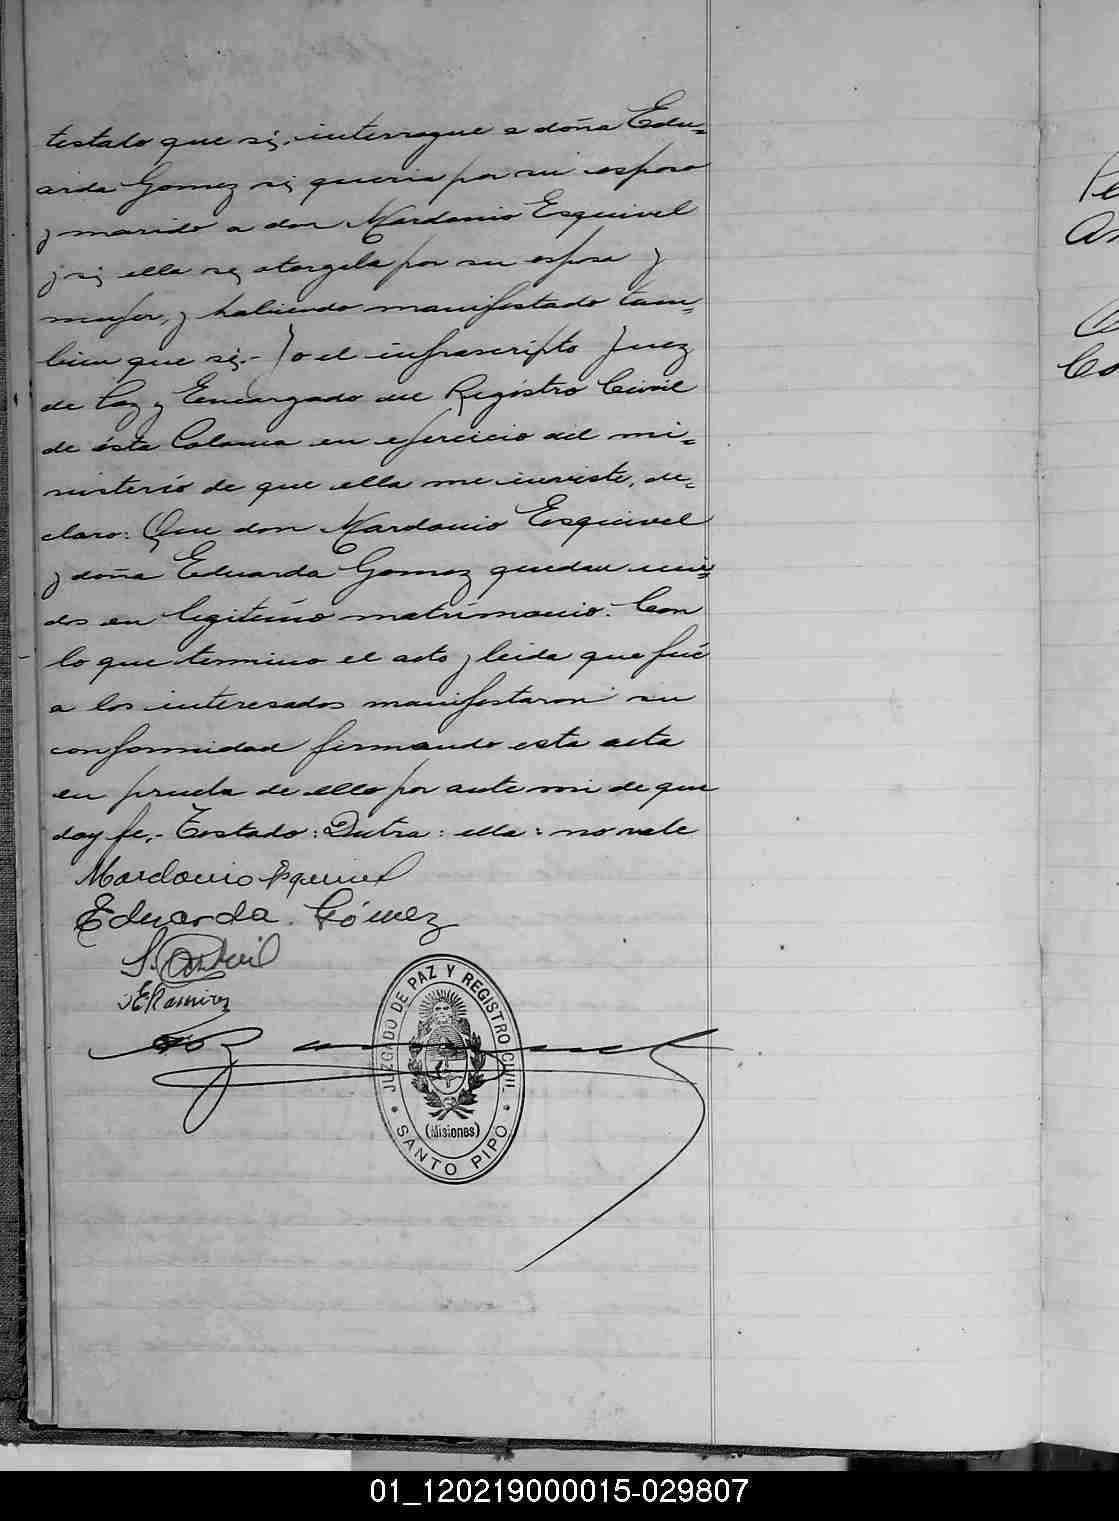 testato que si, interrogue a doña Edu=
arda Gomez si queria por su esposo
y marido a don Mardonio Esquivel
y si ella se otorgaba por su esposa y
mujer, y habiendo manifestado tam=
bien que si.- Yo el infrascripto Juez
de Paz y Encargado del Registro Civil
de ésta Colonia en ejercicio del mi=
nisterio de que ella me inviste, de=
claro: Que don Mardonio Esquivel
y doña Eduarda Gomez quedan uni=
dos en legitimo matrimonio. Con
lo que termino el acto y leida que fué
a los interesados manifestaron su
conformidad firmando esta acta
en prueba de ello por ante mi de que
doy fe.- Testado: Dutra: ella: no vale
Mardonio Esquivel
Eduarda Gómez
E Ramirez
JUZGADO DE PAZ Y REGISTRO CIVIL
(Misiones)
SANTO PIPO
Pe
An
Co
01_120219000015-029807